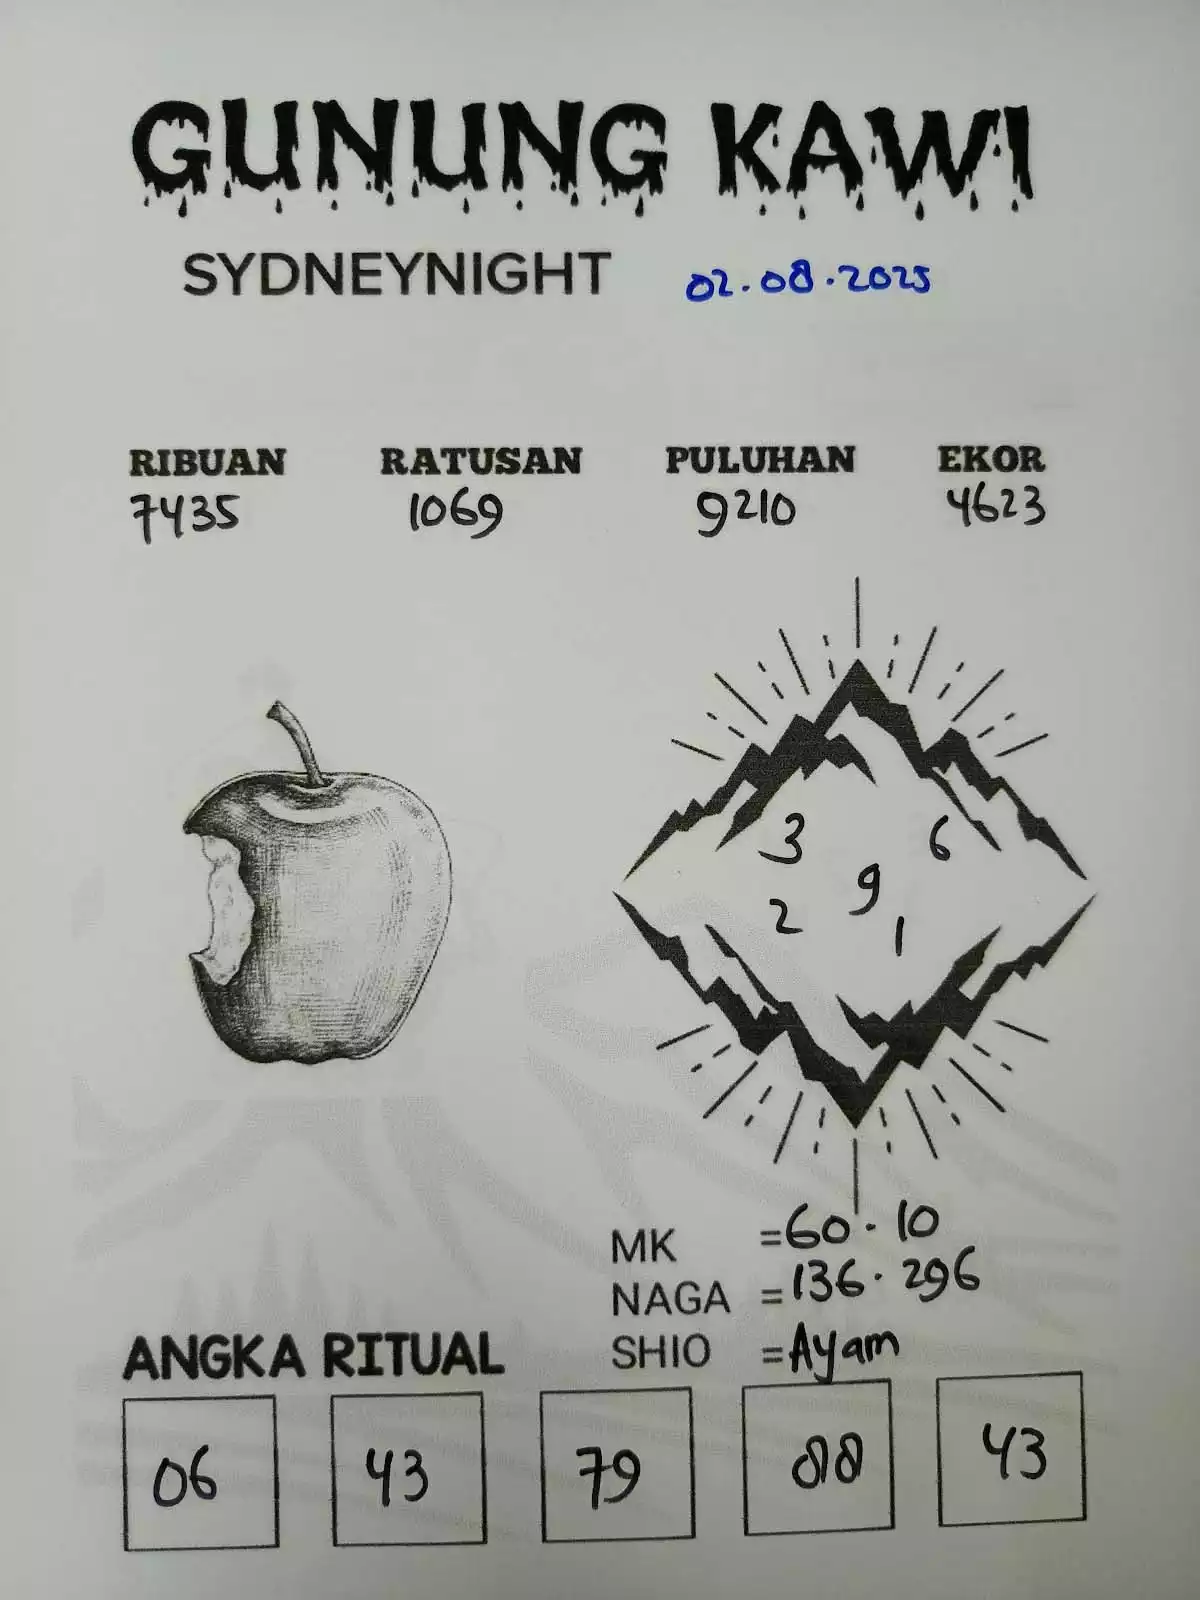 GUNUNG KAWI
SYDNEYNIGHT 02.08.2025
RIBUAN RATUSAN PULUHAN EKOR
7435 1069 9210 4623
3 6
9
2
1
MK =60. 10
NAGA =136. 296
SHIO =Ayam
ANGKA RITUAL
06 43 79 88 43